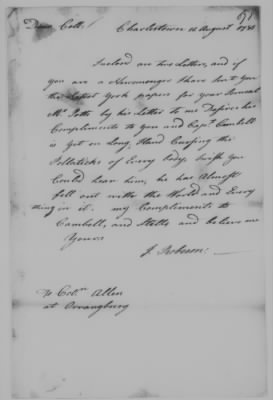 91
Dear Coll.
Charlestown 16 August 1781
Inclosed are two Letters, and if
you are a Newsmonger I have sent You
the Latest York papers for your Perusal
Mr. Potts by his Letter to me Desires his
Compliments to You and Capt. Cambell
is yet on Long Island Cursing the
Polliticks of Every Body. Wish You
Could hear him, he has Almost
fell out with the World and Every
thing in it. my Compliments to
Cambell, and Stelle and believe me
Yours
J. Robeson
To Coln. Allen
at Orrangburg